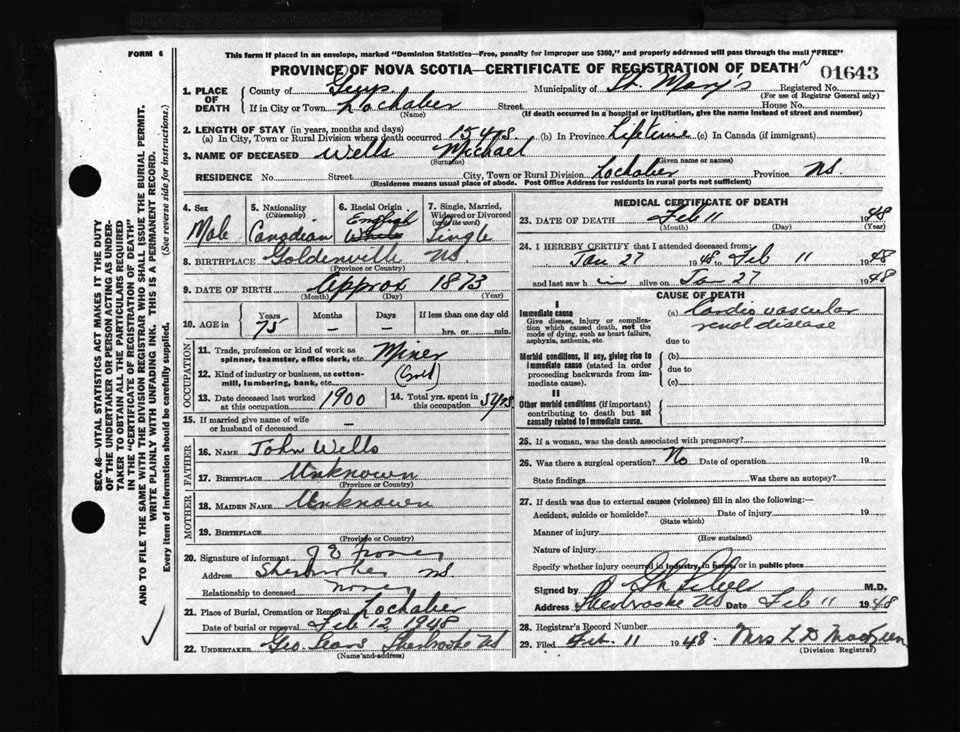 FORM 6
This form if placed in an envelope, marked "Dominion Statistics—Free, penalty for improper use $300," and properly addressed will pass through the mail "FREE"
PROVINCE OF NOVA SCOTIA—CERTIFICATE OF REGISTRATION OF DEATH
01643
1. PLACE OF DEATH
County of Guys Municipality of St. Mary's Registered No.
(For use of Registrar General only)
If in City or Town Lochaber Street House No.
(Name) (If death occurred in a hospital or institution, give the name instead of street and number)
2. LENGTH OF STAY (in years, months and days)
(a) In City, Town or Rural Division where death occurred 15 yrs (b) In Province Lifetime (c) In Canada (if immigrant)
3. NAME OF DECEASED Wells Michael
(Surname) (Given name or names)
RESIDENCE No. Street City, Town or Rural Division Lochaber Province NS.
(Residence means usual place of abode. Post Office Address for residents in rural parts not sufficient)
4. Sex Male
5. Nationality (Citizenship) Canadian
6. Racial Origin English White
7. Single, Married, Widowed or Divorced (Write the word) Single
8. BIRTHPLACE Goldenville NS.
(Province or Country)
9. DATE OF BIRTH Approx 1873
(Month) (Day) (Year)
10. AGE in Years 75 Months – Days – If less than one day old
hrs. or min.
OCCUPATION
11. Trade, profession or kind of work as spinner, teamster, office clerk, etc. Miner
12. Kind of industry or business, as cotton-mill, lumbering, bank, etc. (Gold)
13. Date deceased last worked at this occupation 1900
14. Total yrs. spent in this occupation 5 yrs
15. If married give name of wife or husband of deceased –
FATHER
16. NAME John Wells
17. BIRTHPLACE Unknown
(Province or Country)
MOTHER
18. MAIDEN NAME Unknown
19. BIRTHPLACE
(Province or Country)
20. Signature of informant J E
Address Sherbrooke NS.
Relationship to deceased none
21. Place of Burial, Cremation or Removal Lochaber
Date of burial or removal Feb 12 1948
22. UNDERTAKER Geo. Sherbrooke NS
(Name and address)
MEDICAL CERTIFICATE OF DEATH
23. DATE OF DEATH Feb 11 1948
(Month) (Day) (Year)
24. I HEREBY CERTIFY that I attended deceased from:
Jan 27 1948 to Feb 11 1948
and last saw h im alive on Jan 27 1948
CAUSE OF DEATH
I
Immediate cause
Give disease, injury or complication which caused death, not the mode of dying, such as heart failure, asphyxia, asthenia, etc.
(a) Cardio vascular
renal disease
due to
Morbid conditions, if any, giving rise to immediate cause (stated in order proceeding backwards from immediate cause).
(b)
due to
(c)
II
Other morbid conditions (if important) contributing to death but not causally related to immediate cause.
25. If a woman, was the death associated with pregnancy?
26. Was there a surgical operation? No Date of operation 19
State findings Was there an autopsy?
27. If death was due to external causes (violence) fill in also the following:—
Accident, suicide or homicide? Date of injury 19
(State which)
Manner of injury
(How sustained)
Nature of injury
Specify whether injury occurred in industry, in home, or in public place
Signed by M.D.
Address Sherbrooke NS Date Feb 11 1948
28. Registrar's Record Number
29. Filed Feb. 11 1948 Mrs L D
(Division Registrar)
SEC. 46—VITAL STATISTICS ACT MAKES IT THE DUTY
OF THE UNDERTAKER OR PERSON ACTING AS UNDERTAKER TO OBTAIN ALL THE PARTICULARS REQUIRED
IN THE "CERTIFICATE OF REGISTRATION OF DEATH"
AND TO FILE THE SAME WITH THE DIVISION REGISTRAR WHO SHALL ISSUE THE BURIAL PERMIT.
WRITE PLAINLY WITH UNFADING INK. THIS IS A PERMANENT RECORD.
Every item of information should be carefully supplied. (See reverse side for instructions.)